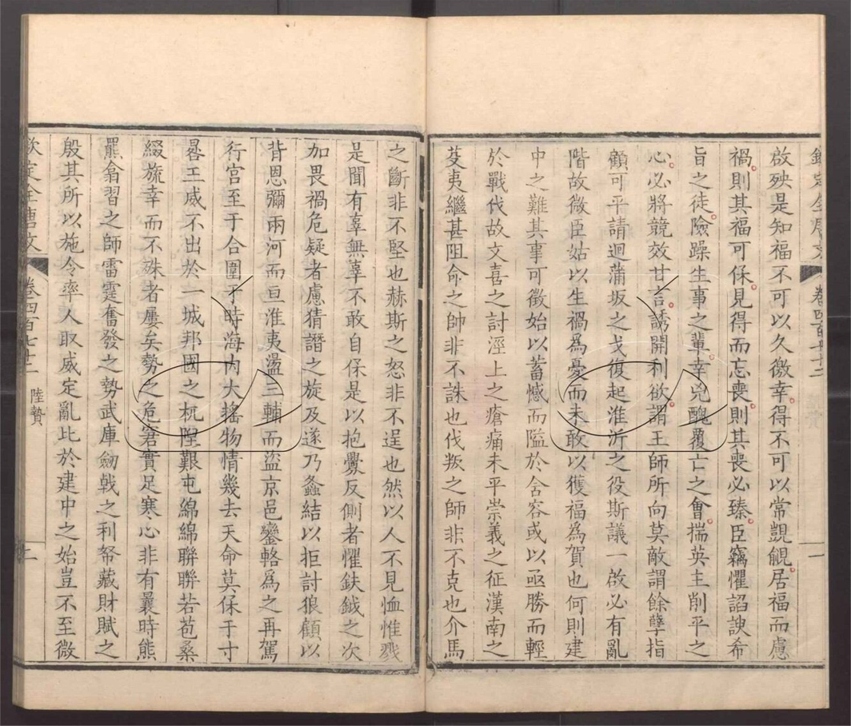 欽定全唐文 卷四百七十二 一
啟殃是知福不可以久徼幸得不可以常覬覦居福而慮
禍則其福可保見得而忘喪則其喪必臻臣竊懼諂諛希
旨之徒險躁生事之輩幸兇醜覆亡之會揣英主削平之
心必將競效甘言誘開利欲謂王師所向莫敵謂餘孽指
顧可平請迴蒲坂之戈復起淮沂之役斯議一啟必有亂
階故微臣姑以生禍為憂而未敢以獲福為賀也何則建
中之難其事可徵始以蓄憾而隘於含容或以亟勝而輕
於戰伐故文喜之討涇上之瘡痛未平崇義之征漢南之
芟夷繼甚阻命之帥非不誅也伐叛之師非不克也介馬
之斷非不堅也赫斯之怒非不逞也然以人不見恤惟戮
是聞有辜無辜不敢自保是以抱釁反側者懼鈇鉞之次
加畏禍危疑者慮猜譖之旋及遂乃螽結以拒討狼顧以
背恩彌兩河而亘淮夷盪三輔而盜京邑鑾輅為之再駕
行宮至于合圍于時海內大搖物情幾去天命莫保于寸
晷王威不出於一城邦國之杌隉艱屯綿綿聯聯若苞桑
綴旒幸而不殊者屢矣勢之危窘實足寒心非有曩時熊
羆翕習之師雷霆奮發之勢武庫劒戟之利帑藏財賦之
殷其所以施令率人取威定亂比於建中之始豈不至微
欽定全唐文 卷四百七十二 陸贄 二